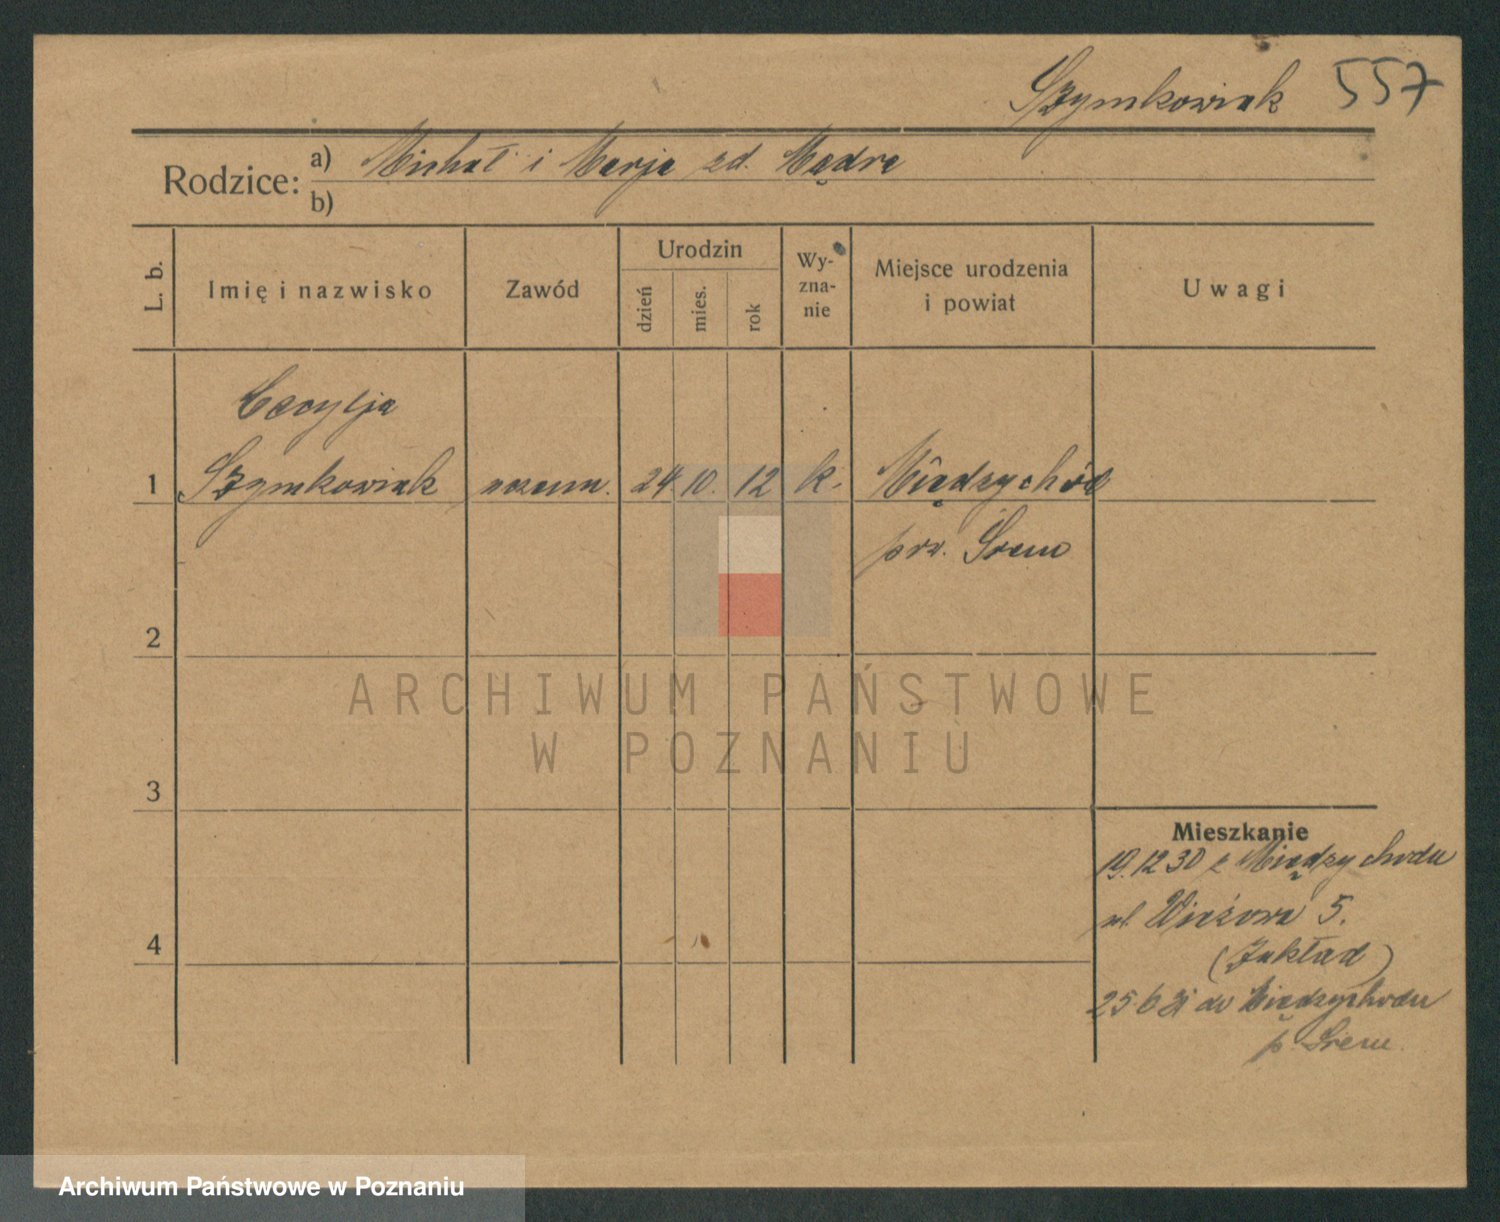 Szymkowiak 557
Rodzice: a) Michał i Marja zd. Mądra
b)
L. b. Imię i nazwisko Zawód Urodzin dzień mies. rok Wyznanie Miejsce urodzenia i powiat Uwagi
Cecylja
1 Szymkowiak uczenn. 24 10. 12 k. Międzychód
pow. Śrem
2
ARCHIWUM PAŃSTWOWE
W POZNANIU
3
Mieszkanie
19.12 30 z Międzychodu
ul. Wieżowa 5.
4
(Zakład)
25.6 31 do Międzychodu
p. Śrem
Archiwum Państwowe w Poznaniu